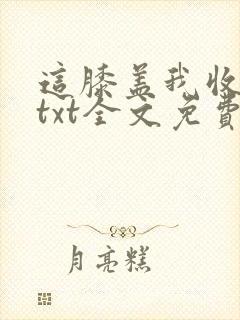 這膝蓋我收
txt全文免費
月亮糕